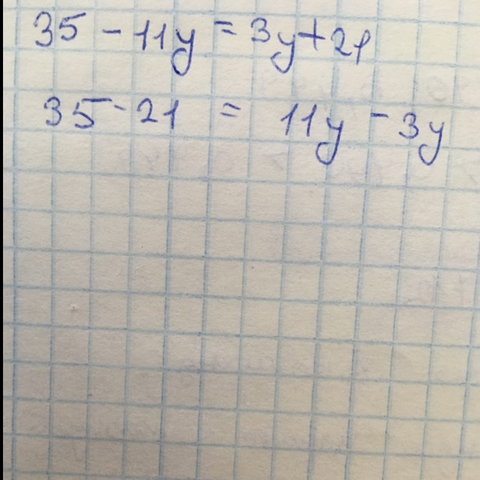 35 - 11y = 3y + 21
35 - 21 = 11y - 3y